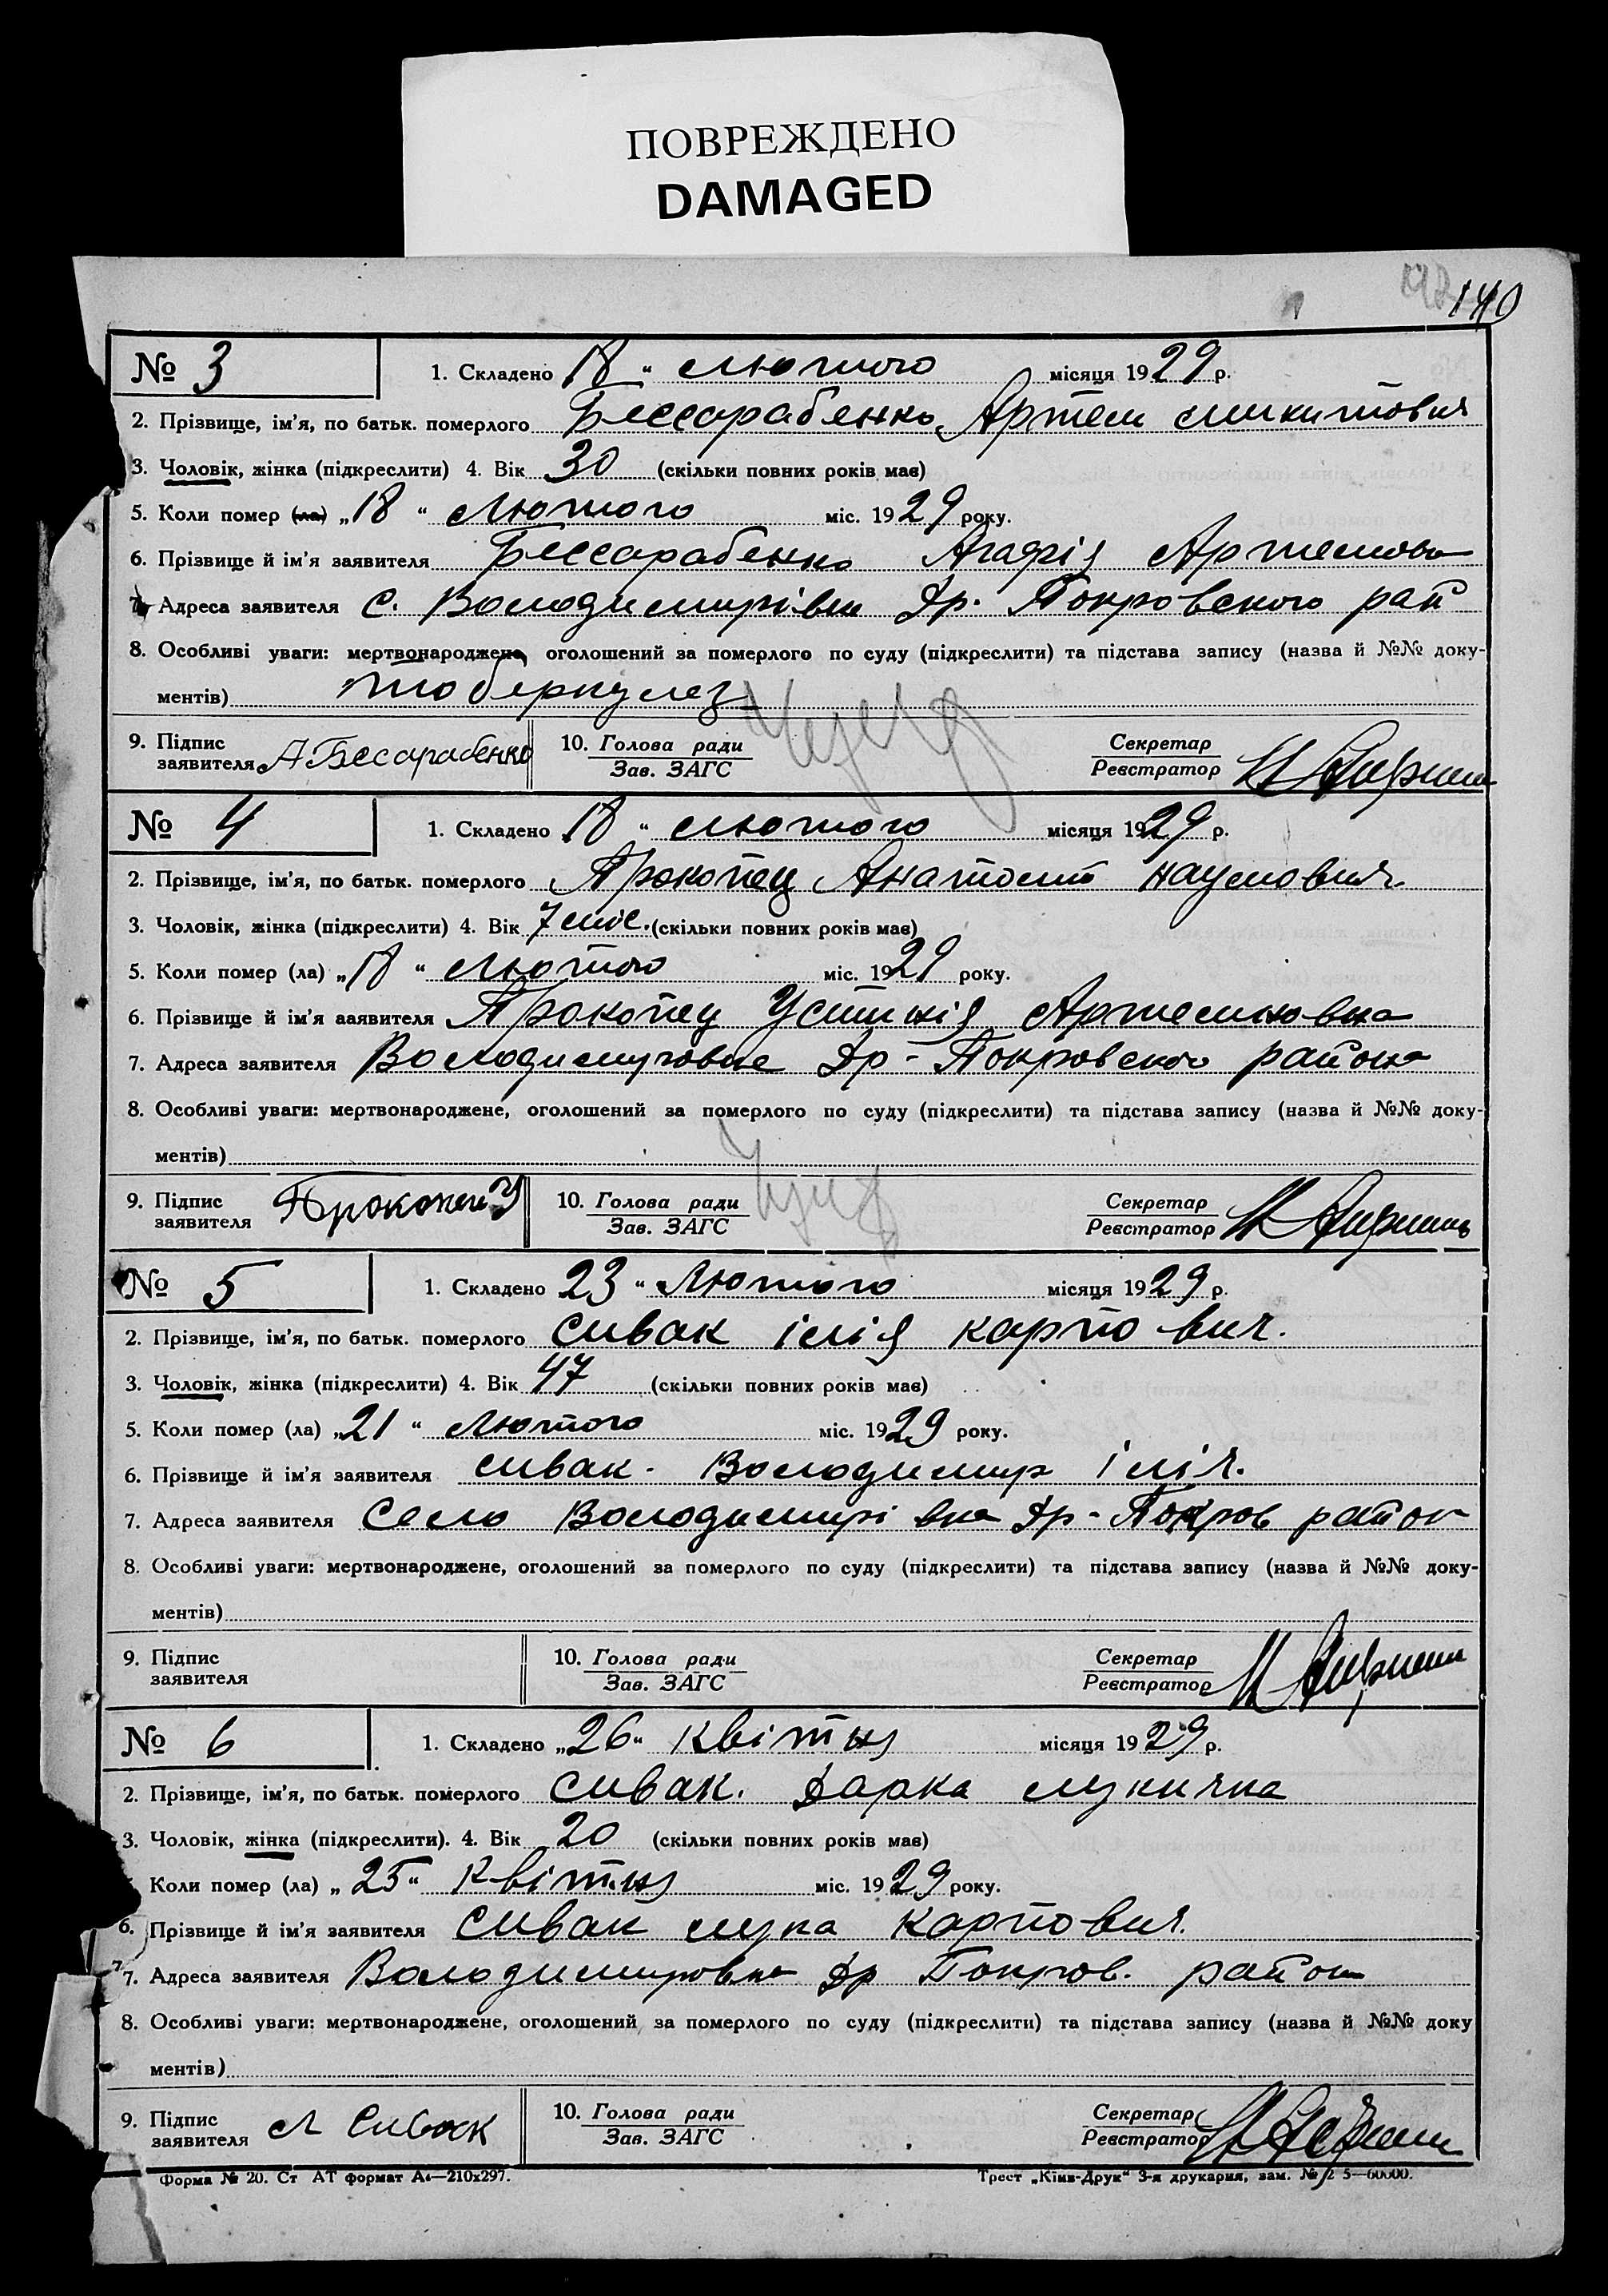 ПОВРЕЖДЕНО
DAMAGED
140
№ 3 1. Складено 18 " лютого місяця 1929 р.
2. Прізвище, ім'я, по батьк. померлого Бессарабенко Артем микитович
3. Чоловік, жінка (підкреслити) 4. Вік 30 (скільки повних років має)
5. Коли помер (ла) „18 " Лютого міс. 1929 року.
6. Прізвище й ім'я заявителя Бессарабенко Агафія Артемова
7. Адреса заявителя с. Володимирівки Др. Покровского рай
8. Особливі уваги: мертвонароджене, оголошений за померлого по суду (підкреслити) та підстава запису (назва й №№ доку-
ментів) тюберкулез
9. Підпис заявителя А Бесарабенко 10. Голова ради Зав. ЗАГС Секретар Реєстратор
№ 4 1. Складено 18 " лютого місяця 1929 р.
2. Прізвище, ім'я, по батьк. померлого Прокопец Анатолій наумович.
3. Чоловік, жінка (підкреслити) 4. Вік 7 міс. (скільки повних років має)
5. Коли помер (ла) „18 " лютого міс. 1929 року.
6. Прізвище й ім'я аявителя Прокопец Устинія Артемовна
7. Адреса заявителя Володимировне Др-Покровского района
8. Особливі уваги: мертвонароджене, оголошений за померлого по суду (підкреслити) та підстава запису (назва й №№ доку-
ментів)
9. Підпис заявителя Прокопец У 10. Голова ради Зав. ЗАГС Секретар Реєстратор
№ 5 1. Складено 23 " Лютого місяця 1929 р.
2. Прізвище, ім'я, по батьк. померлого Сивак ілія карпович.
3. Чоловік, жінка (підкреслити) 4. Вік 47 (скільки повних років має)
5. Коли помер (ла) „21 " Лютого міс. 1929 року.
6. Прізвище й ім'я заявителя сивак. Володимир Іліч.
7. Адреса заявителя Село Володимирівка Др-Покров район
8. Особливі уваги: мертвонароджене, оголошений за померлого по суду (підкреслити) та підстава запису (назва й №№ доку-
ментів)
9. Підпис заявителя 10. Голова ради Зав. ЗАГС Секретар Реєстратор
№ 6 1. Складено „26" квітня місяця 1929 р.
2. Прізвище, ім'я, по батьк. померлого Сивак. Дарка лукична
3. Чоловік, жінка (підкреслити). 4. Вік 20 (скільки повних років має)
Коли помер (ла) „ 25" Квітня міс. 1929 року.
6. Прізвище й ім'я заявителя Сивак лука Карпович.
7. Адреса заявителя Володимировка Др Покров. район
8. Особливі уваги: мертвонароджене, оголошений за померлого по суду (підкреслити) та підстава запису (назва й №№ доку
ментів)
9. Підпис заявителя Л Сивак 10. Голова ради Зав. ЗАГС Секретар Реєстратор
Форма № 20. Ст АТ формат А4—210х297. Трест „Київ-Друк" 3-я друкарня, зам. № 5—60000.